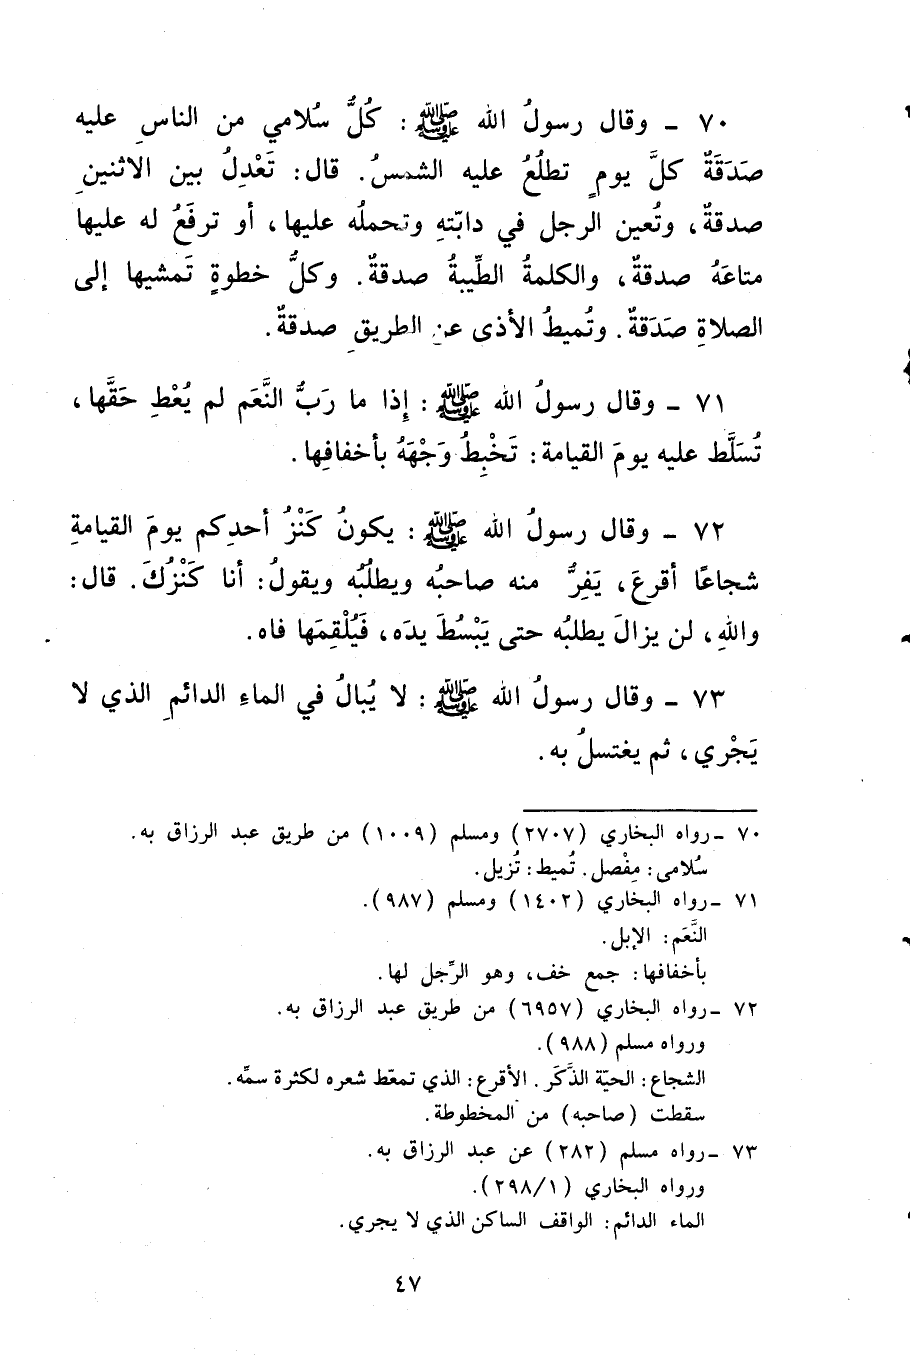 ٧٠ ـ وقال رسولُ الله ﷺ : كُلُّ سُلامي من الناسِ عليه
صَدَقَةٌ كلَّ يومٍ تطلُعُ عليه الشمسُ. قال: تَعْدِلُ بين الاثنينِ
صدقةٌ، وتُعين الرجل في دابّتهِ وتحملُه عليها، أو ترفَعُ له عليها
متاعَهُ صدقةٌ، والكلمةُ الطِّيبةُ صدقةٌ. وكلُّ خطوةٍ تَمشيها إلى
الصلاةِ صَدَقةٌ. وتُميطُ الأذى عن الطريقِ صدقةٌ.
٧١ ـ وقال رسولُ الله ﷺ : إِذا ما رَبُّ النَّعَم لم يُعْطِ حَقَّها،
تُسَلَّط عليه يومَ القيامة: تَخْبِطُ وَجْهَهُ بأخفافِها.
٧٢ ـ وقال رسولُ الله ﷺ : يكونُ كَنْزُ أحدِكم يومَ القيامةِ
شجاعًا أقرعَ، يَفِرُّ منه صاحبُه ويطلُبُه ويقولُ: أنا كَنْزُكَ. قال:
واللهِ، لن يزالَ يطلبُه حتى يَبْسُطَ يدَه، فَيُلْقِمَها فاه.
٧٣ ـ وقال رسولُ الله ﷺ : لا يُبالُ في الماءِ الدائمِ الذي لا
يَجْري، ثم يغتسلُ به.
٧٠ ـ رواه البخاري (٢٧٠٧) ومسلم (١٠٠٩) من طريق عبد الرزاق به.
سُلامى: مِفْصل. تُميط: تُزيل.
٧١ ـ رواه البخاري (١٤٠٢) ومسلم (٩٨٧).
النَّعَم: الإبل.
بأخفافها: جمع خف، وهو الرِّجل لها.
٧٢ ـ رواه البخاري (٦٩٥٧) من طريق عبد الرزاق به.
ورواه مسلم (٩٨٨).
الشجاع: الحيّة الذَّكَر. الأقرع: الذي تمعّط شعره لكثرة سمِّه.
سقطت (صاحبه) من المخطوطة.
٧٣ ـ رواه مسلم (٢٨٢) عن عبد الرزاق به.
ورواه البخاري (٢٩٨/١).
الماء الدائم: الواقف الساكن الذي لا يجري.
٤٧